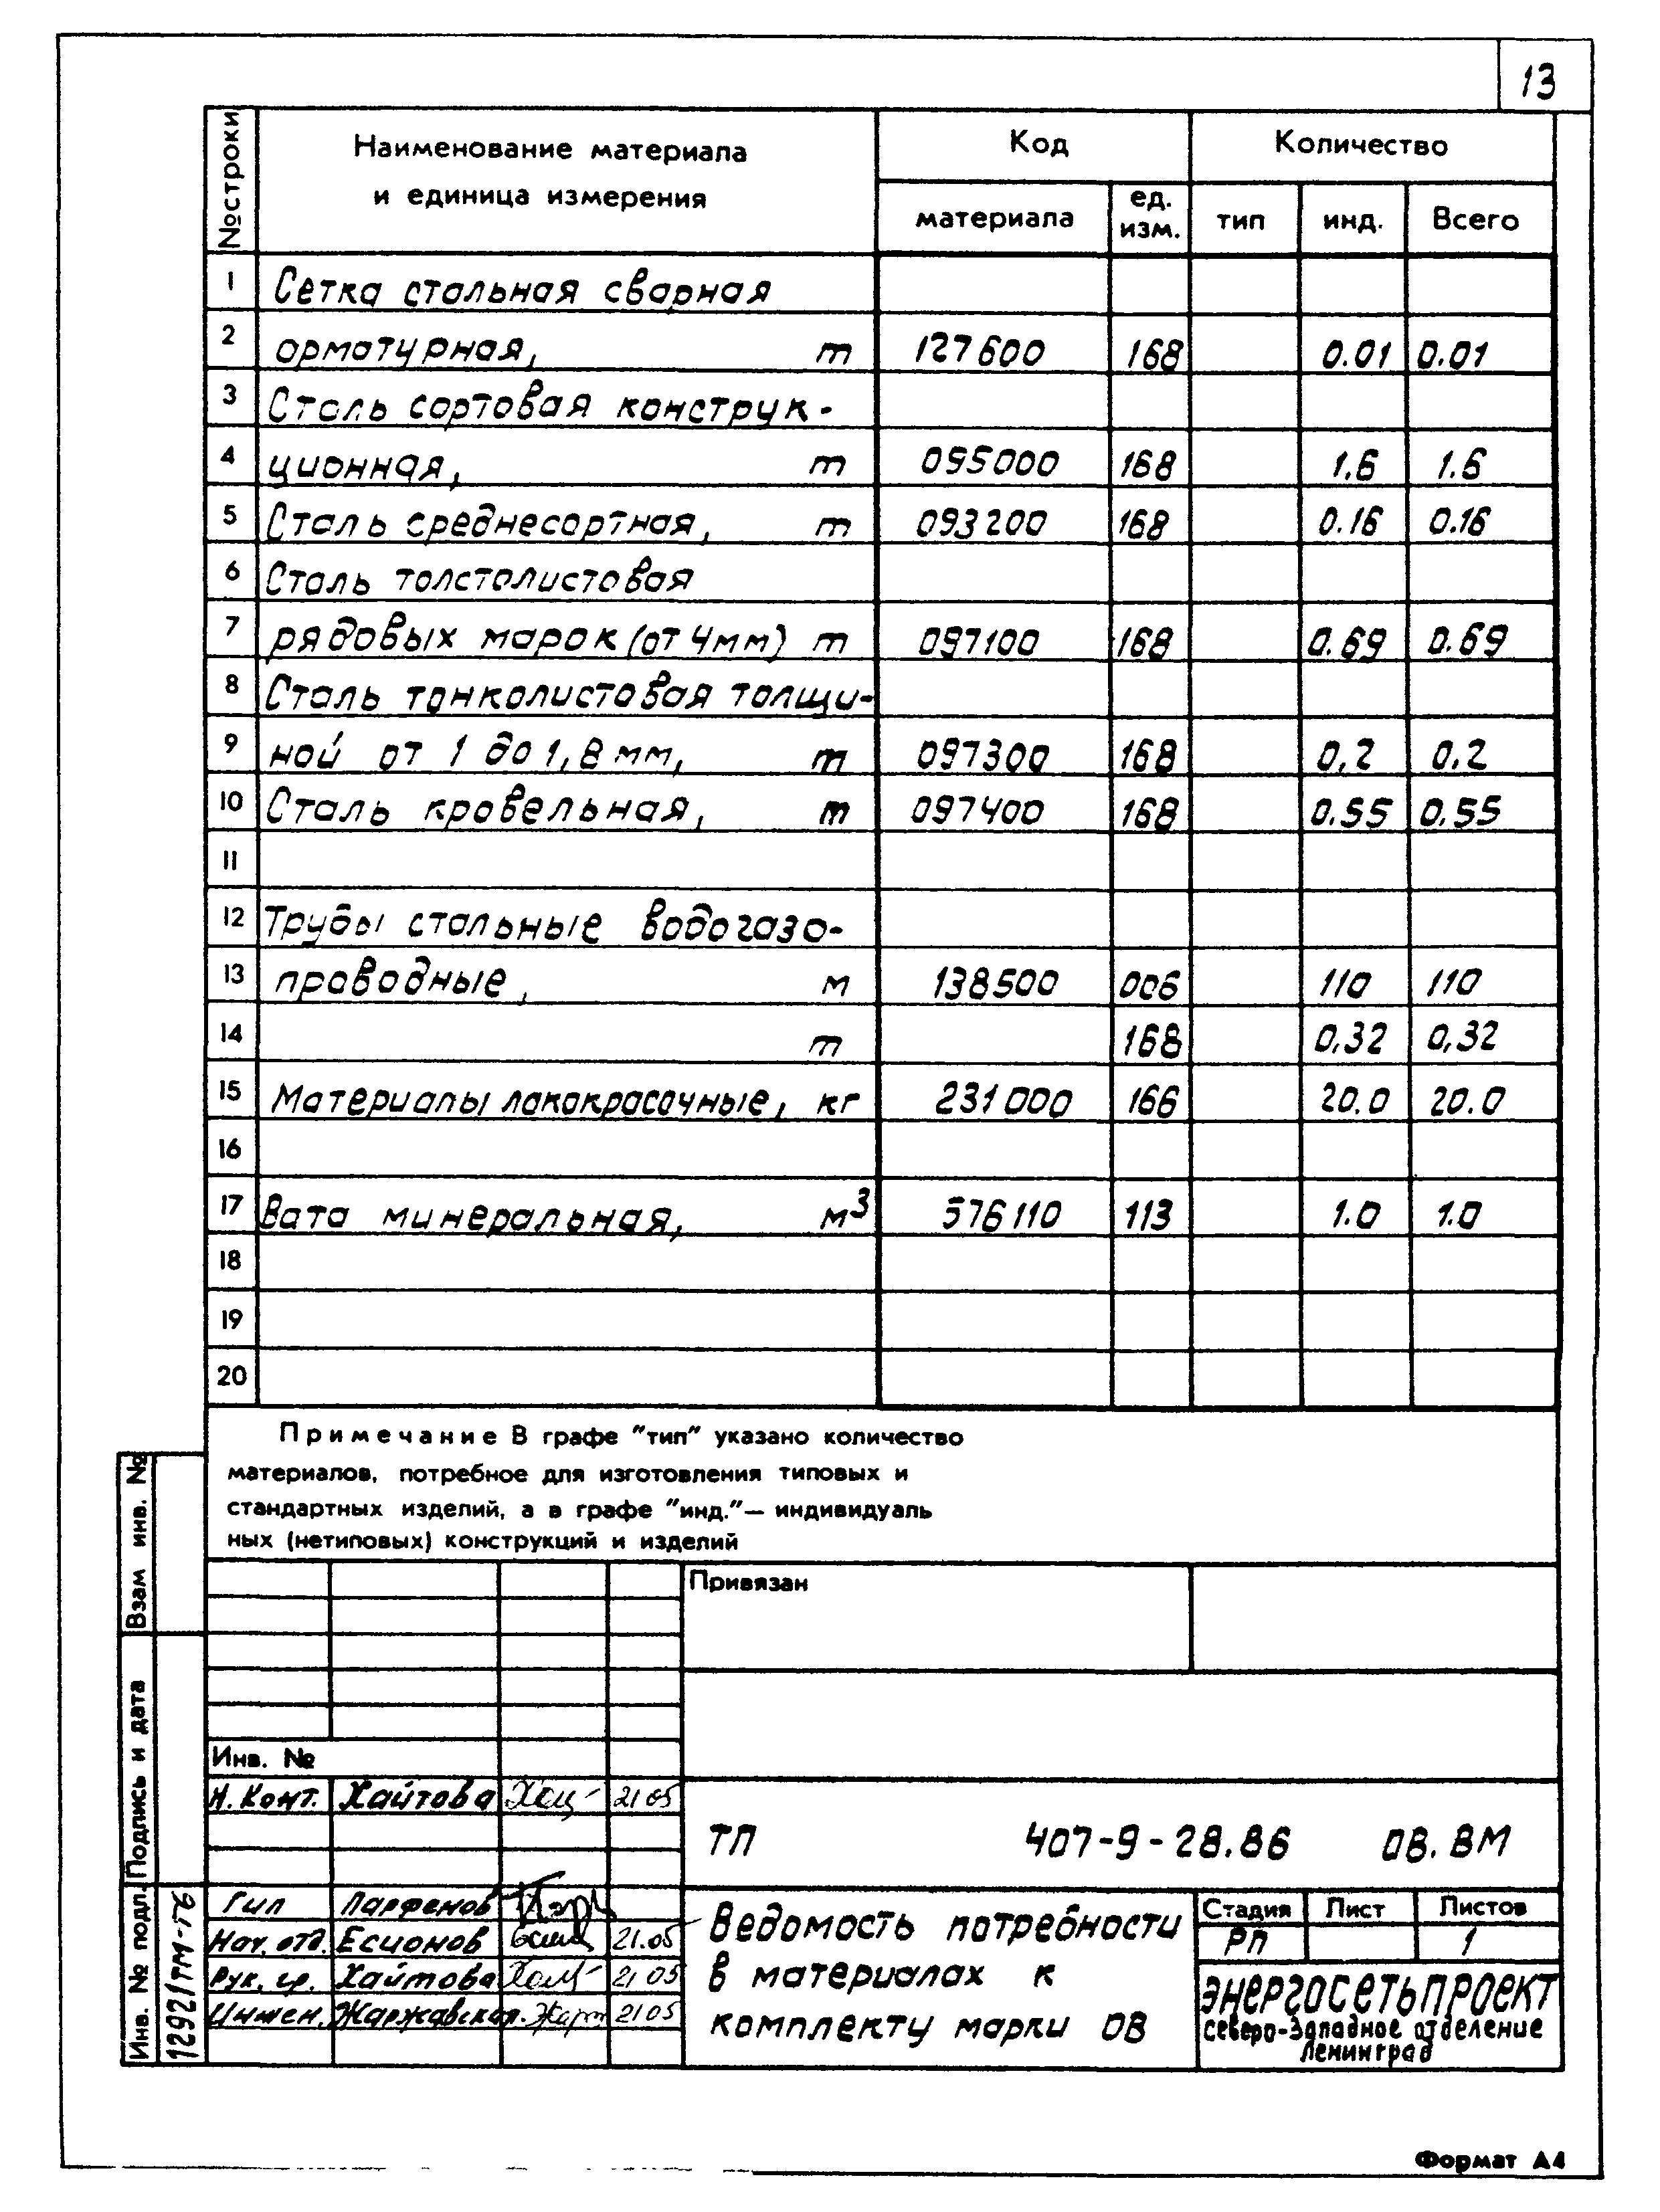 13
№ строки | Наименование материала и единица измерения | Код | Количество
материала | ед. изм. | тип | инд. | Всего
1 Сетка стальная сварная
2 арматурная, т 127600 168 0.01 0.01
3 Сталь сортовая конструк-
4 ционная, т 095000 168 1.6 1.6
5 Сталь среднесортная, т 093200 168 0.16 0.16
6 Сталь толстолистовая
7 рядовых марок (от 4 мм) т 097100 168 0.69 0.69
8 Сталь тонколистовая толщи-
9 ной от 1 до 1,8 мм, т 097300 168 0,2 0,2
10 Сталь кровельная, т 097400 168 0.55 0.55
11
12 Трубы стальные водогазо-
13 проводные, м 138500 006 110 110
14 т 168 0,32 0,32
15 Материалы лакокрасочные, кг 231000 166 20.0 20.0
16
17 Вата минеральная, м³ 576110 113 1.0 1.0
18
19
20
Примечание В графе "тип" указано количество
материалов, потребное для изготовления типовых и
стандартных изделий, а в графе "инд."— индивидуаль
ных (нетиповых) конструкций и изделий
Привязан
Инв. №
Н. Конт. Хайтова 21 05
ТП 407-9-28.86 ОВ. ВМ
Гип Парфенов
Нач. отд. Есионов 21.05
Рук. гр. Хайтова 21 05
Инжен. Жаржавская 21 05
Ведомость потребности
в материалах к
комплекту марки ОВ
Стадия Лист Листов
РП 1
ЭНЕРГОСЕТЬПРОЕКТ
Северо-Западное отделение
Ленинград
Взам инв. №
Подпись и дата
Инв. № подл.
12921ТМ-Т6
Формат А4